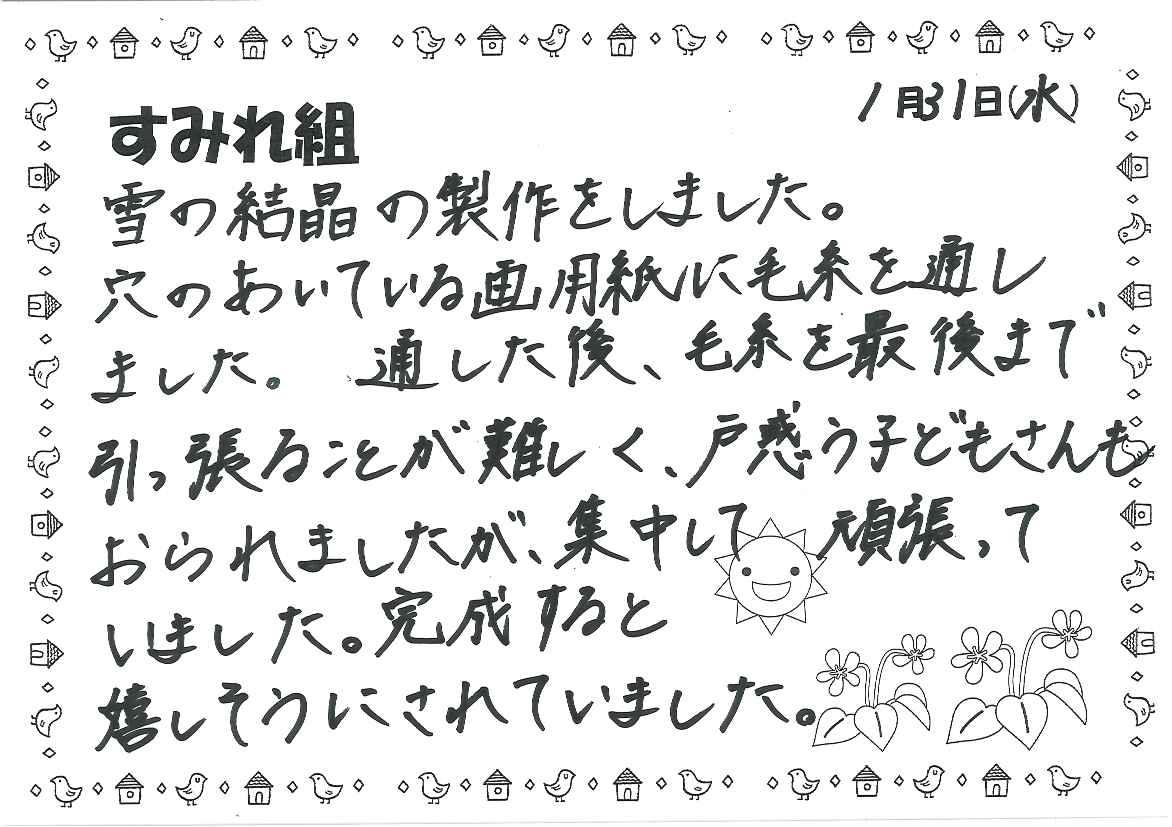 1月31日(水)
すみれ組
雪の結晶の製作をしました。
穴のあいている画用紙に毛糸を通し
ました。 通した後、毛糸を最後まで
引っ張ることが難しく、戸惑う子どもさんも
おられましたが、集中して 頑張って
いました。完成すると
嬉しそうにされていました。